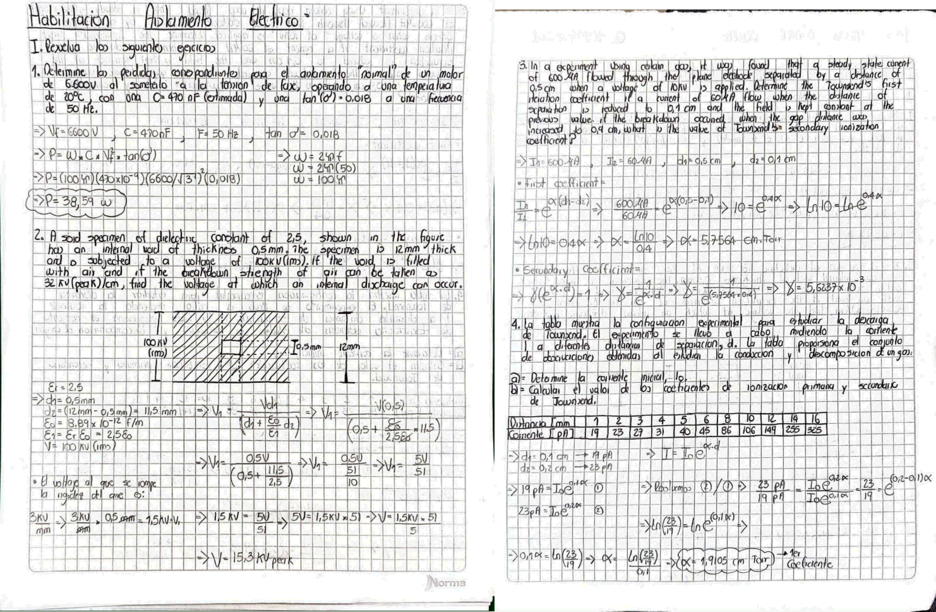 Habilitacion Aislamiento Electrico
I. Resuelva los siguientes ejercicios
1. Determine las perdidas correspondientes para el aislamiento "normal" de un motor
de 6.600V al someterlo a la tension de fase, operando a una temperatura
de 20°C con una C=470 nF (estimada) y una tan(σ)=0.018 a una frecuencia
de 50 Hz.
=> Vf=6600V , C=470nF , F=50 Hz , tan σ = 0,018
=> P=W×C×Vf²×tan(σ) => W=2πf
W=2π(50)
=> P=(100π)(470×10⁻⁹)(6600/√3)²(0,018) W=100π
=> P=38,59 W
2. A solid specimen of dielectric constant of 2,5, shown in the figure
has an internal void of thickness 0,5mm. The specimen is 12mm thick
and is subjected to a voltage of 100KV(rms). If the void is filled
with air and if the breakdown strength of air can be taken as
32 KV(peak)/cm, find the voltage at which an internal discharge can occur.
100KV
(rms)
0,5mm
12mm
Er = 2.5
=> d1=0,5mm
d2=(12mm-0,5mm)=11,5mm => V1= Vd1/(d1+(E0/E1)d2) => V1= V(0,5)/(0,5+(E0/2,5E0)×11,5)
E0=8.89×10⁻¹² F/m
E1=Er E0=2,5E0
V=100KV(rms)
=> V1= 0,5V/(0,5+11,5/2,5) => V1= 0,5V/(51/10) => V1= 5V/51
• El voltaje al que se rompe
la rigidez del aire es:
3KV/mm => 3KV/mm × 0,5mm=1,5KV=V1 => 1,5KV=5V/51 => 5V=1,5KV×51 => V=1,5KV×51/5
=> V=15,3 KVpeak
Norma
3. In a experiment using certain gas, it was found that a steady state current
of 600 μA flowed through the plane electrode separated by a distance of
0,5cm when a voltage of 10KV is applied. Determine the Townsend's first
coefficient if a current of 60μA flow when the distance of
separation is reduced to 0,1 cm and the field is kept constant at the
previous value. if the breakdown occurred when the gap distance was
increased to 0,9 cm, what is the value of Townsend's secondary ionization
coefficient?
=> I1=600μA , I2=60μA , d1=0,5cm , d2=0,1cm
• First coefficient=
I1/I2=e^α(d1-d2) => 600μA/60μA=e^α(0,5-0,1) => 10=e^0,4α => Ln10=Ln e^0,4α
=> Ln10=0,4α => α=Ln10/0,4 => α=5,7564 cm.Torr
• Secundary Coefficient=
=> γ(e^α.d)=1 => γ=1/e^α.d => γ=1/e^(5,7564×0,9) => γ=5,6237×10⁻³
4. La tabla muestra la configuracion experimental para estudiar la descarga
de Townsend. El experimento se lleva a cabo midiendo la corriente
I a diferentes distancias de separacion, d. La tabla proporciona el conjunto
de observaciones obtenidas al estudiar la conduccion y descomposicion de un gas.
a)= Determine la corriente inicial, Io.
b)= Calcular el valor de los coeficientes de ionizacion primaria y secundaria
de Townsend.
Distancia [mm] 1 2 3 4 5 6 8 10 12 14 16
Corriente [pA] 19 23 27 31 40 45 86 106 149 255 325
=> d1=0,1 cm → 19 pA => I=Io e^α.d
d2=0,2cm → 23 pA
=> 19 pA=Io e^0,1α ① => Realizamos ②/① => 23 pA/19 pA = Io e^0,2α/Io e^0,1α = 23/19 = e^(0,2-0,1)α
23pA=Io e^0,2α ②
=> Ln(23/19)=Ln e^(0,1α) =>
=> 0,1α=Ln(23/19) => α= Ln(23/19)/0,1 => α=1,9105 cm Torr → 1er
Coeficiente